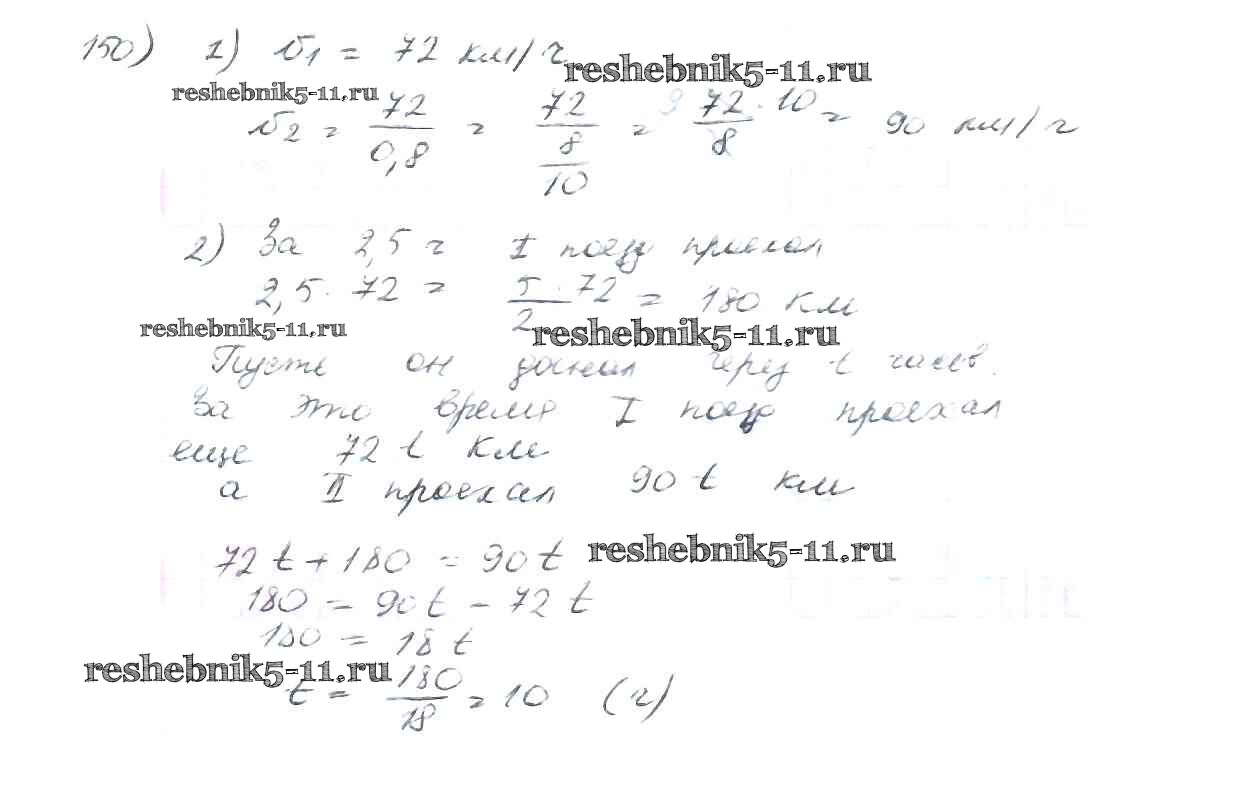 150) 1) v₁ = 72 км/ч
reshebnik5-11.ru
reshebnik5-11.ru
v₂ = 72/0,8 = 72/(8/10) = 9 72·10/8 = 90 км/ч
2) За 2,5 ч I поезд проехал
2,5 · 72 = 5·72/2 = 180 км
reshebnik5-11.ru
reshebnik5-11.ru
Пусть он догнал через t часов.
За это время I поезд проехал
еще 72 t км
а II проехал 90 t км
72 t + 180 = 90 t
reshebnik5-11.ru
180 = 90t - 72 t
180 = 18 t
reshebnik5-11.ru
t = 180/18 = 10 (ч)